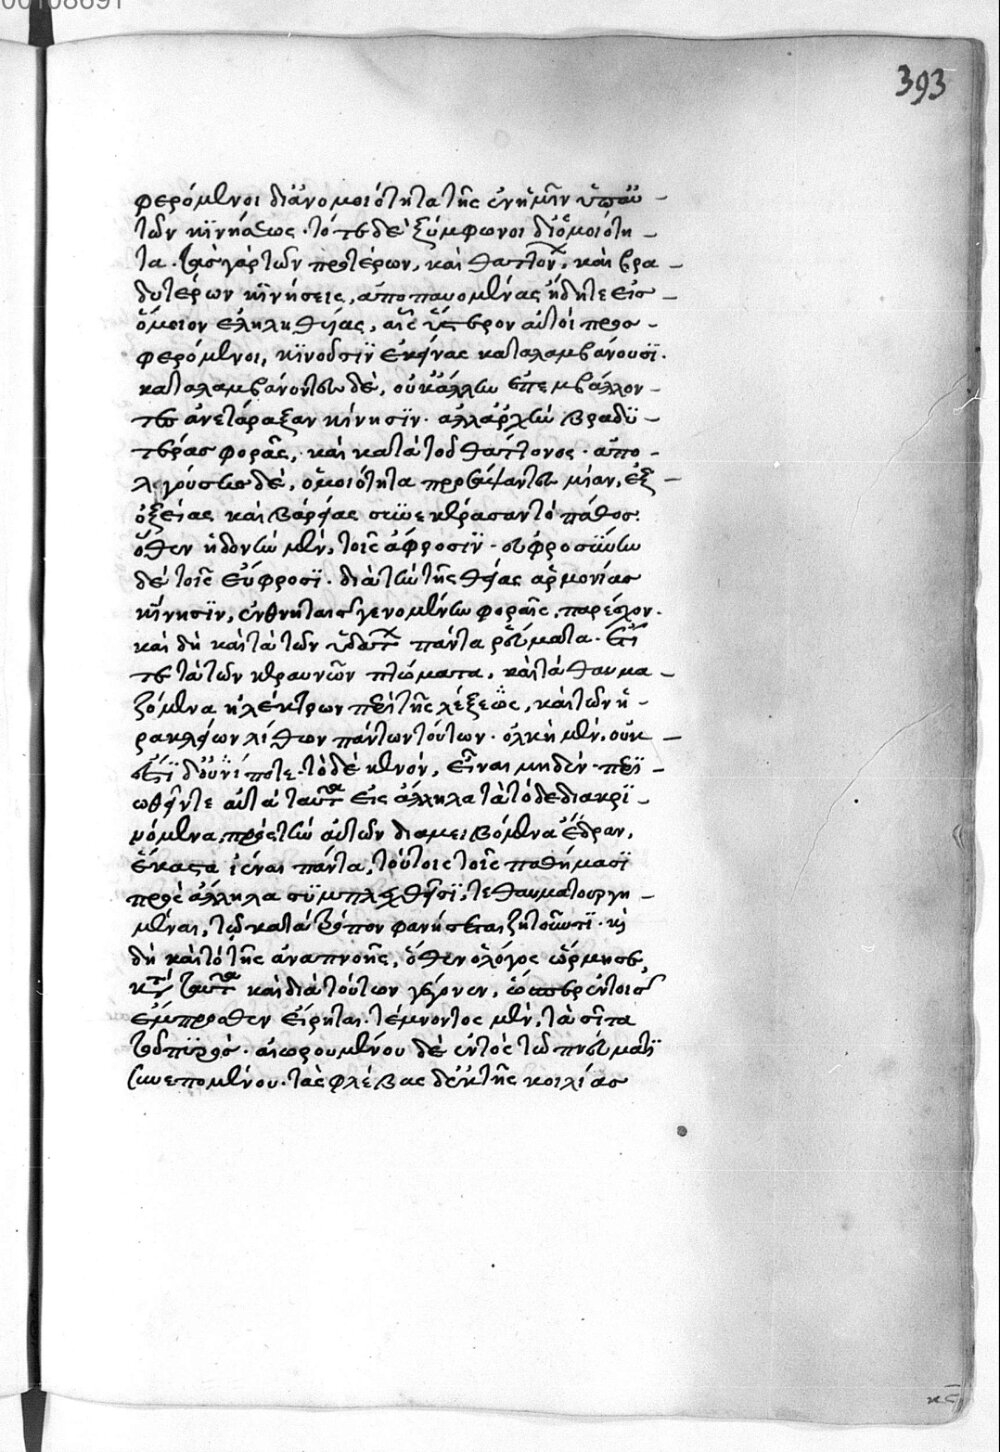 00108691
393
φερόμενοι δι' ἀνομοιότητα τῆς ἐν ἡμῖν ὑπ' αὐ-
τῶν κινήσεως· τότε δὲ ξύμφωνοι δι' ὁμοιότη-
τα· τὰς γὰρ τῶν προτέρων, καὶ θαττόνων, καὶ βρα-
δυτέρων κινήσεις, ἀποπαυομένας ἤδη τε εἰς
ὅμοιον ἐληλυθυίας, αἷς ὕστερον αὐτοὶ προσ-
φερόμενοι, κινοῦσιν ἐκείνας καταλαμβάνουσι.
καταλαμβάνοντες δὲ, οὐκ ἄλλην ἐπεμβάλλον-
τες ἀνετάραξαν κίνησιν· ἀλλ' ἀρχὴν βραδυ-
τέρας φορᾶς, καὶ κατὰ τοῦ θάττονος· ἀπο-
ληγούσης δὲ, ὁμοιότητα προσάψαντες μίαν, ἐξ
ὀξείας καὶ βαρείας συνεκεράσαντο πάθος.
ὅθεν ἡδονὴν μὲν, τοῖς ἄφροσιν· εὐφροσύνην
δὲ τοῖς εὔφροσι· διὰ τὴν τῆς θείας ἁρμονίας
κίνησιν, ἐν θνηταῖς γενομένην φοραῖς, παρέσχον.
καὶ δὴ καὶ τὰ τῶν ὑδάτων πάντα ῥεύματα· ἔτι
τε τὰ τῶν κεραυνῶν πτώματα, καὶ τὰ θαυμα-
ζόμενα ἠλέκτρων περὶ τῆς λέξεως, καὶ τῶν ἡ-
ρακλείων λίθων πάντων τούτων· ὁλκὴ μὲν, οὐκ
ἔστιν οὐδενί ποτε· τὸ δὲ κενὸν, εἶναι μηδέν· περι-
ωθεῖν τε αὑτὰ ταῦτα εἰς ἄλληλα τὰ τό δε διακρι-
νόμενα, πρὸς τὴν αὑτῶν διαμειβόμενα ἕδραν,
ἕκαστα ἰέναι πάντα, τούτοις τοῖς παθήμασι
πρὸς ἄλληλα συμπλεχθεῖσι, τεθαυματουργη-
μέναι, τῷ κατὰ τρόπον φανήσεται ζητοῦντι· καὶ
δὴ καὶ τὸ τῆς ἀναπνοῆς, ὅθεν ὁ λόγος ὥρμησε,
κατὰ ταῦτα καὶ διὰ τούτων γέγονεν, ὥσπερ ἐν τοῖς
ἔμπροσθεν εἴρηται· τέμνοντος μὲν, τὰ σιτία
τοῦ πυρός· αἰωρουμένου δὲ ἐντὸς τῷ πνεύματι
συνεπομένου· τὰς φλέβας δὲ ἐκ τῆς κοιλίας